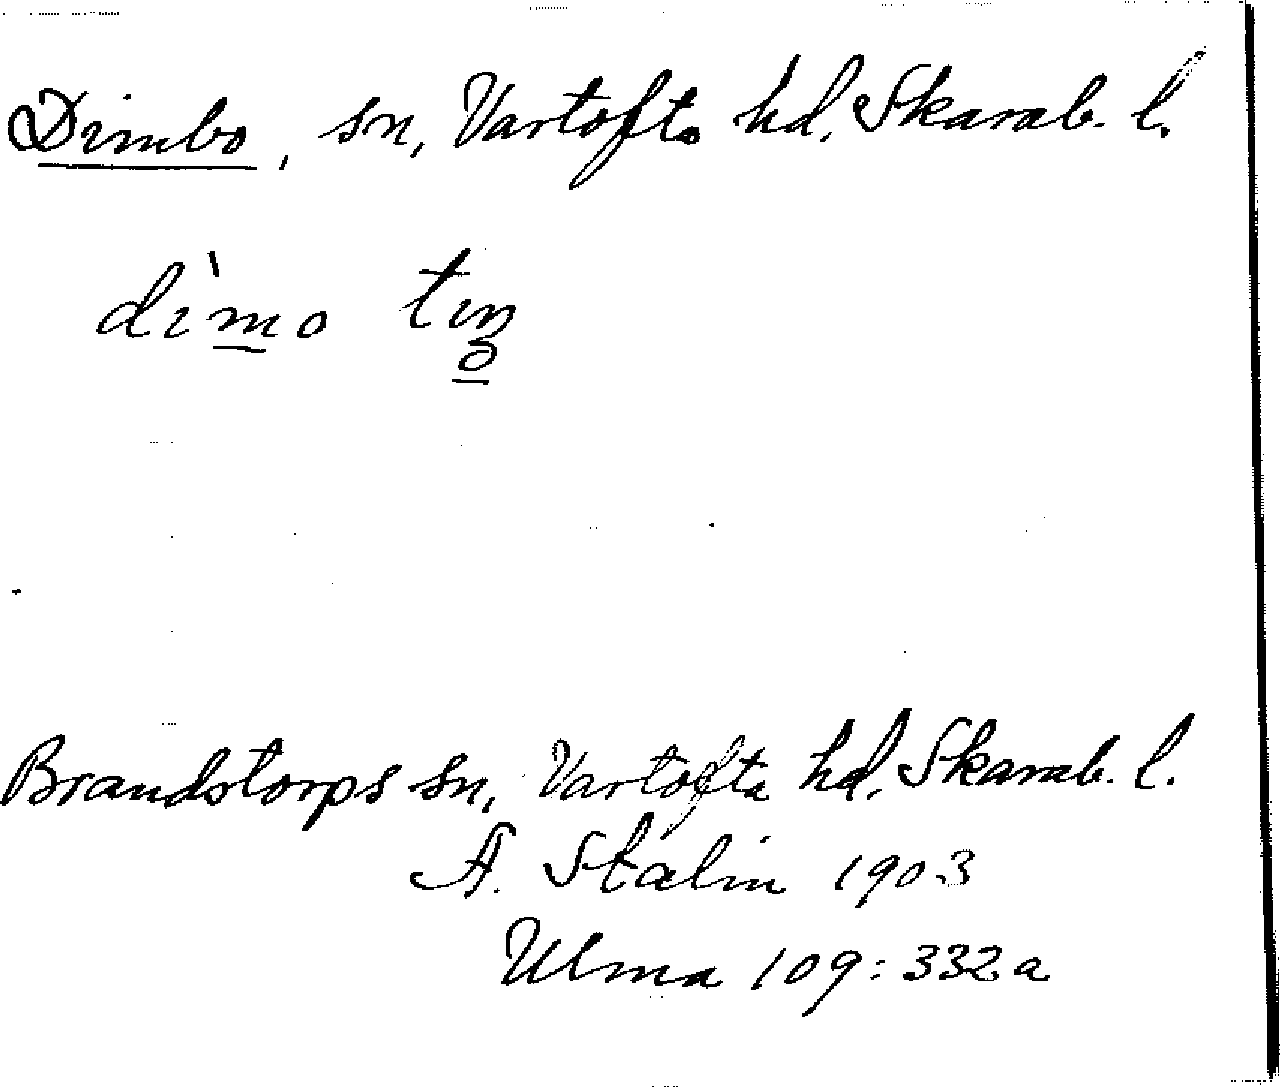 Dimbo, sn, Vartofta hd, Skarab. l.
dìmo
Brandstorps sn, Vartofta hd, Skarab. l.
A. Stalin 1903
Ulma 109:332a